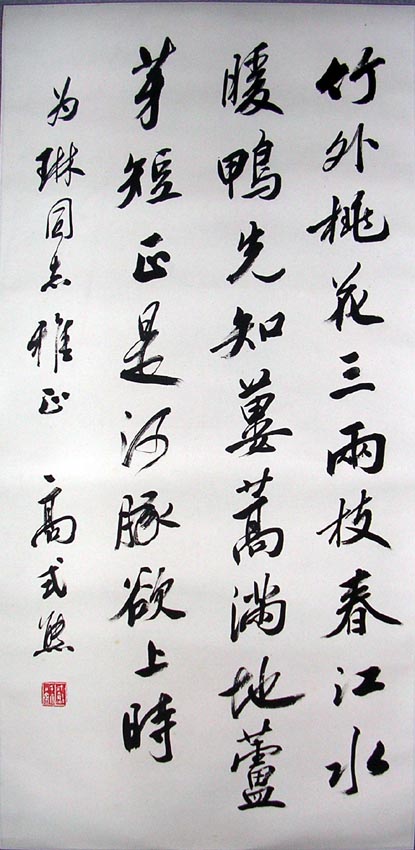 竹外桃花三兩枝春江水
暖鴨先知蔞蒿滿地蘆
芽短正是河豚欲上時
为琳同志雅正 高式熊